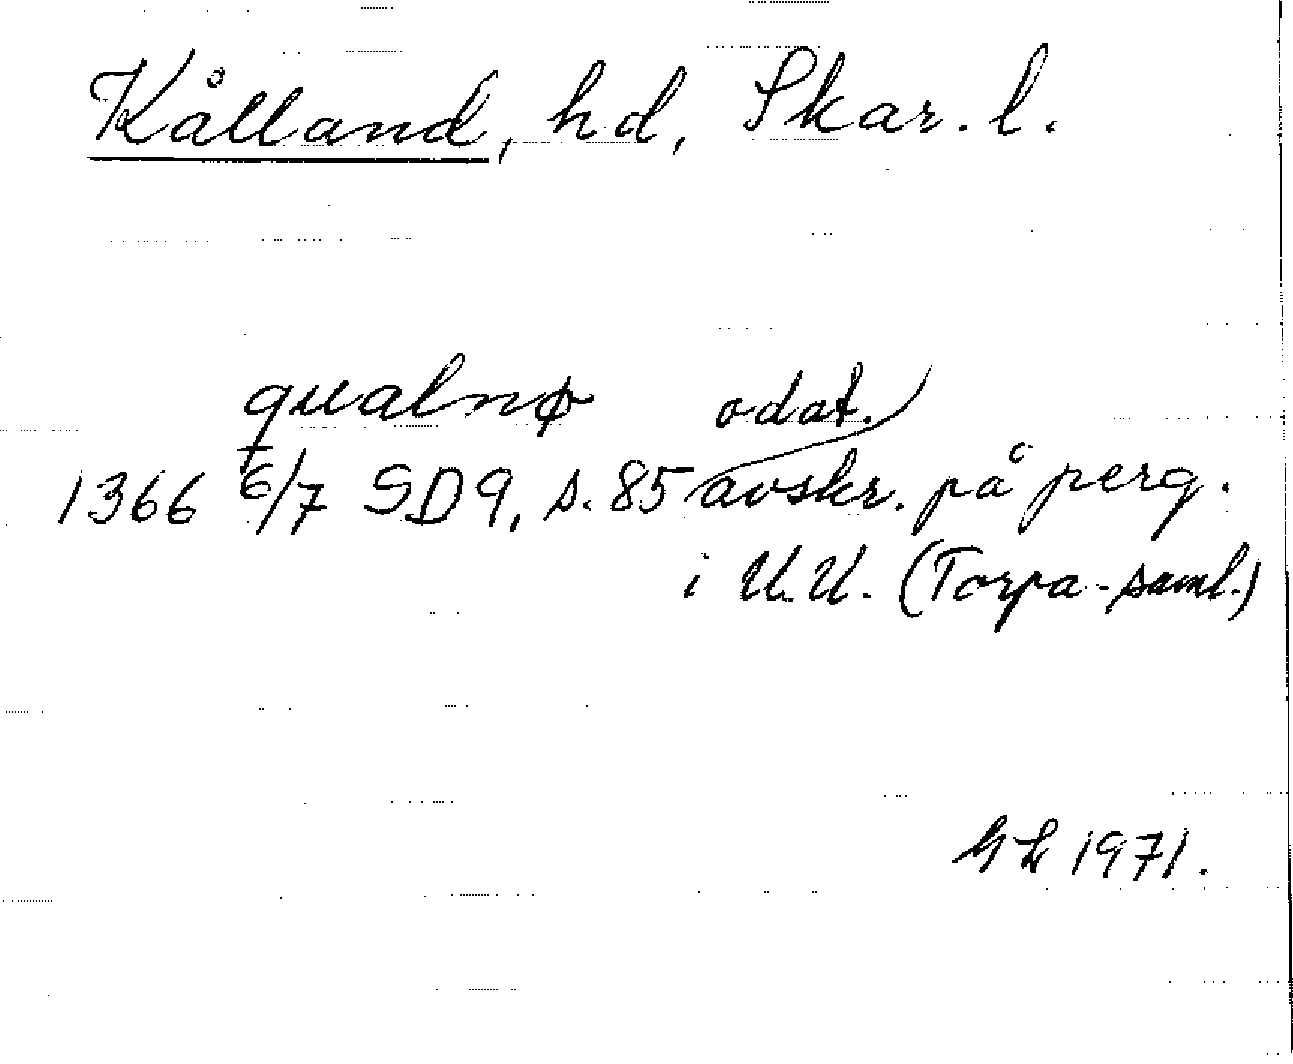 Kålland, hd, Skar. l.
qualnø odat.
1366 6/7 SD9, s. 85 avskr. på perg.
i U.U. (Torpa-saml.)
1971.